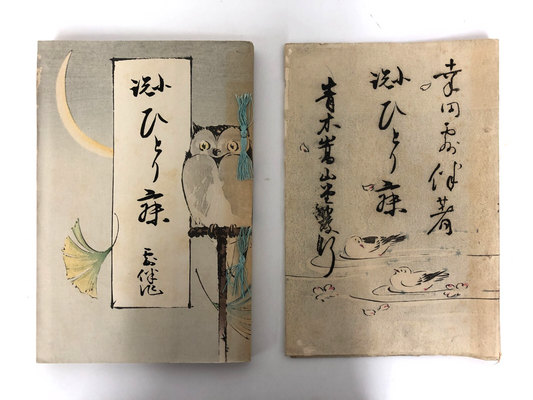 小説
ひとり寐
露伴作
幸田露伴著
小説
ひとり寐
青木嵩山堂發行